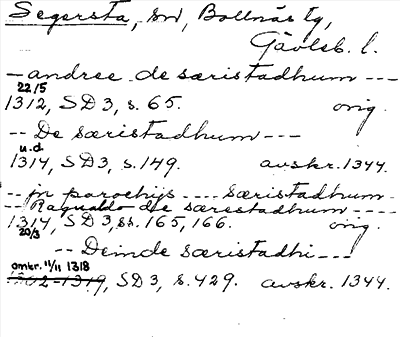 Segersta, sn, Bollnäs tg,
Gävleb. l.
– andree de særistadhum ---
22/5
1312, SD 3, s. 65. orig.
-- De særistadhum ---
u.d
1314, SD 3, s. 149. avskr. 1344.
--- in parochijs ---- særistadhum -
-- Ragualdo de særestadhum ----
1314, SD 3, ss. 165, 166. orig.
20/3
-- Deinde særistadhi ---
omkr. 11/11 1318
1302-1319, SD 3, s. 429. avskr. 1344.